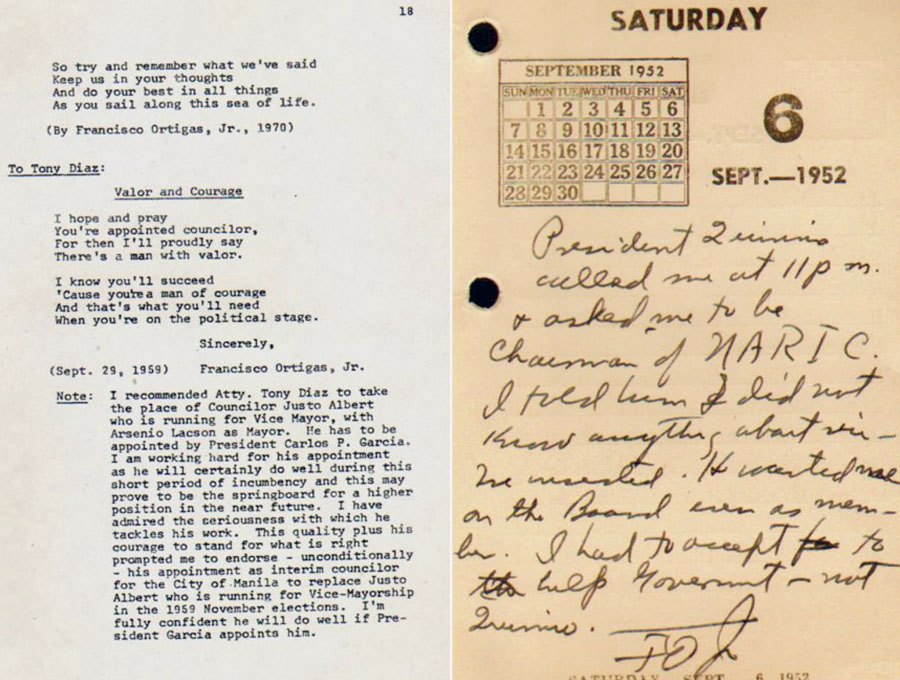 18
So try and remember what we've said
Keep us in your thoughts
And do your best in all things
As you sail along this sea of life.
(By Francisco Ortigas, Jr., 1970)
To Tony Diaz:
Valor and Courage
I hope and pray
You're appointed councilor,
For then I'll proudly say
There's a man with valor.
I know you'll succeed
'Cause you're a man of courage
And that's what you'll need
When you're on the political stage.
Sincerely,
(Sept. 29, 1959) Francisco Ortigas, Jr.
Note: I recommended Atty. Tony Diaz to take
the place of Councilor Justo Albert
who is running for Vice Mayor, with
Arsenio Lacson as Mayor. He has to be
appointed by President Carlos P. Garcia.
I am working hard for his appointment
as he will certainly do well during this
short period of incumbency and this may
prove to be the springboard for a higher
position in the near future. I have
admired the seriousness with which he
tackles his work. This quality plus his
courage to stand for what is right
prompted me to endorse - unconditionally
- his appointment as interim councilor
for the City of Manila to replace Justo
Albert who is running for Vice-Mayorship
in the 1959 November elections. I'm
fully confident he will do well if Pre-
sident Garcia appoints him.
SATURDAY
SEPTEMBER 1952
SUN MON TUE WED THU FRI SAT
1 2 3 4 5 6
7 8 9 10 11 12 13
14 15 16 17 18 19 20
21 22 23 24 25 26 27
28 29 30
6
SEPT.—1952
President Quirino
called me at 11 p m.
& asked me to be
Chairman of NARIC.
I told him I did not
know anything about ri-
He insisted. He wanted me
on the Board even as mem-
ber. I had to accept to
help Government - not
Quirino.
FOJr
SATURDAY SEPT. 6 1952